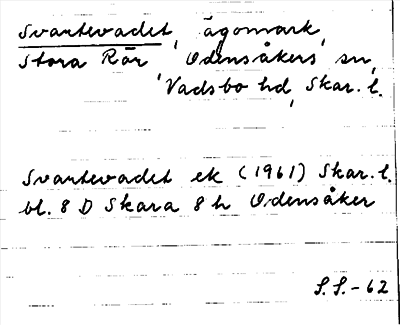 Svartevadet, ägomark,
Stora Rör, Odensåkers sn,
Vadsbo hd, Skar. l.
Svartevadet ek (1961) Skar. l.
bl. 8 D Skara 8 h Odensåker
S.S.-62